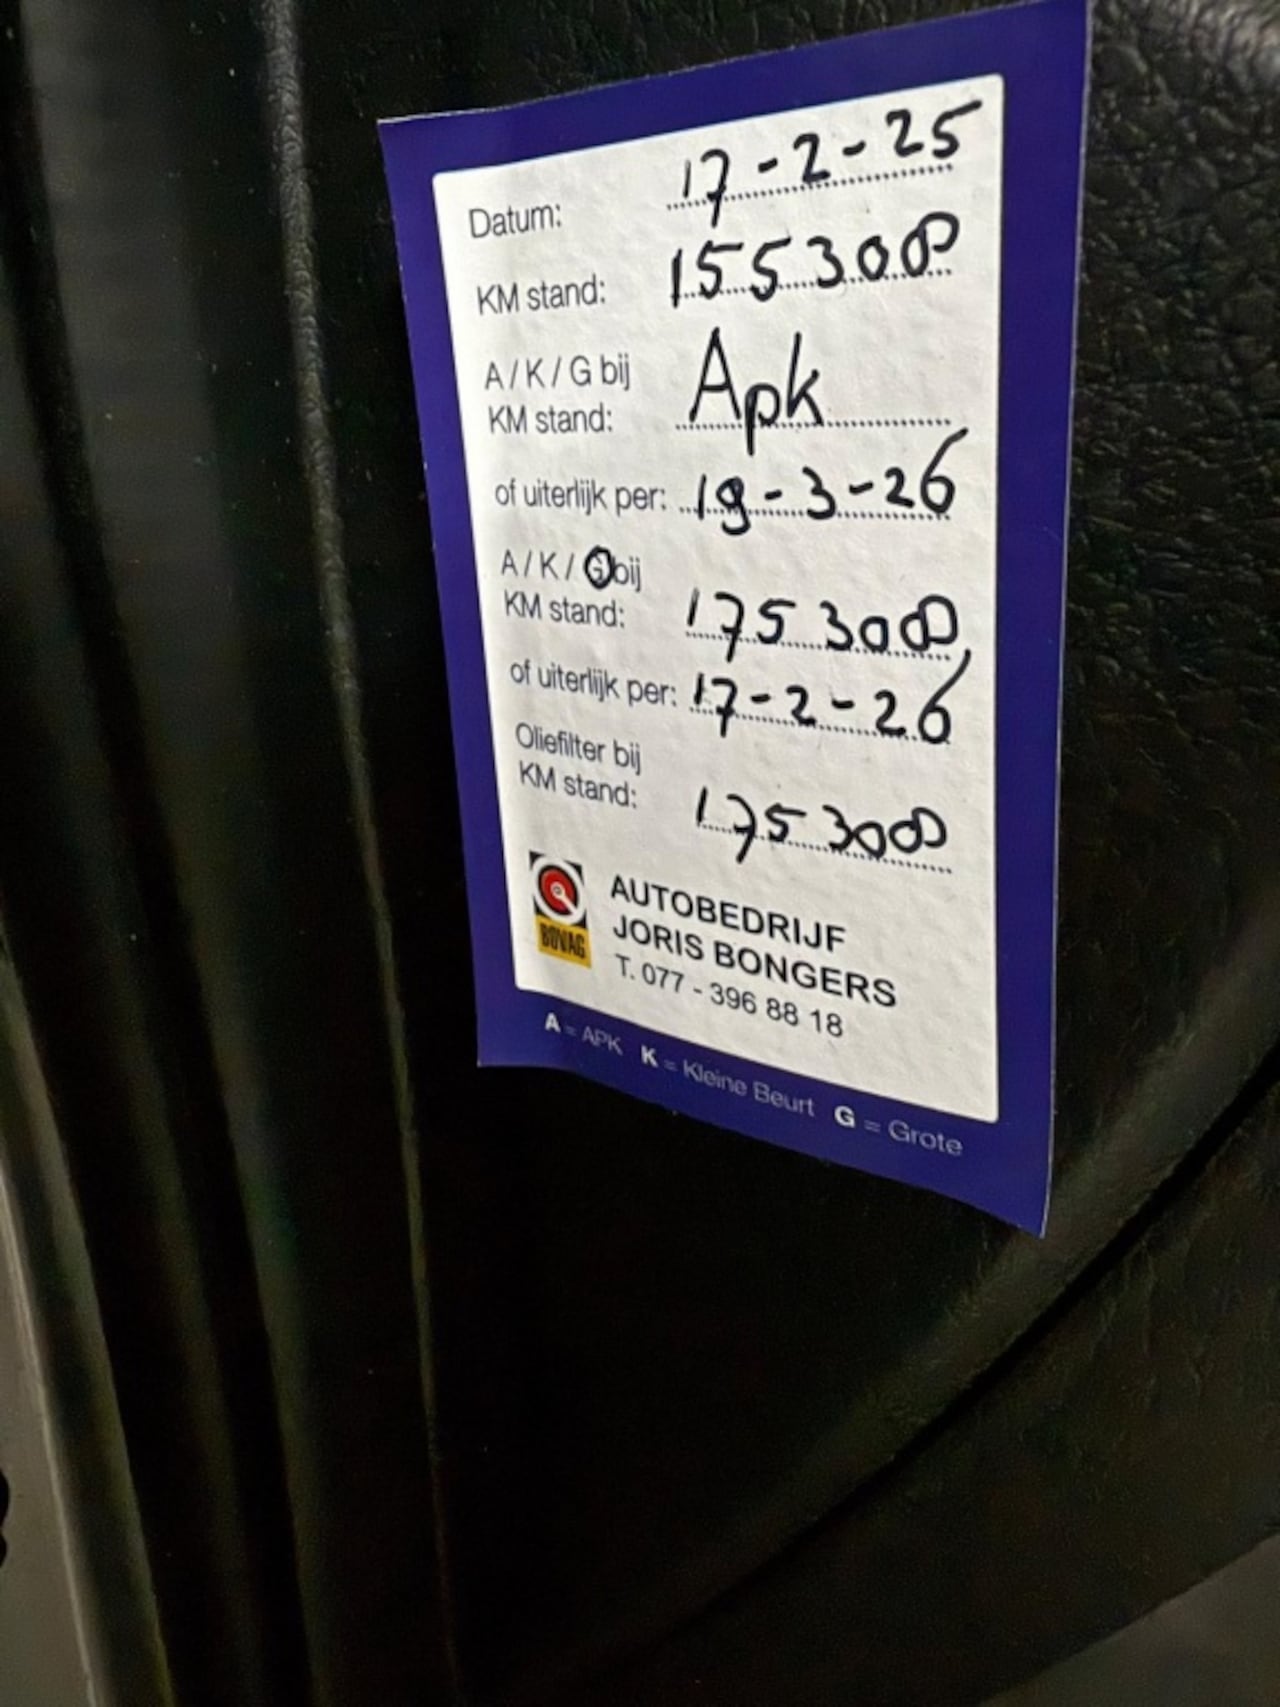 Datum: 17-2-25
KM stand: 155300
A / K / G bij
KM stand: Apk
of uiterlijk per: 19-3-26
A / K / G bij
KM stand: 175 300
of uiterlijk per: 17-2-26
Oliefilter bij
KM stand: 175 300
BOVAG
AUTOBEDRIJF
JORIS BONGERS
T. 077 - 396 88 18
A = APK K = Kleine Beurt G = Grote